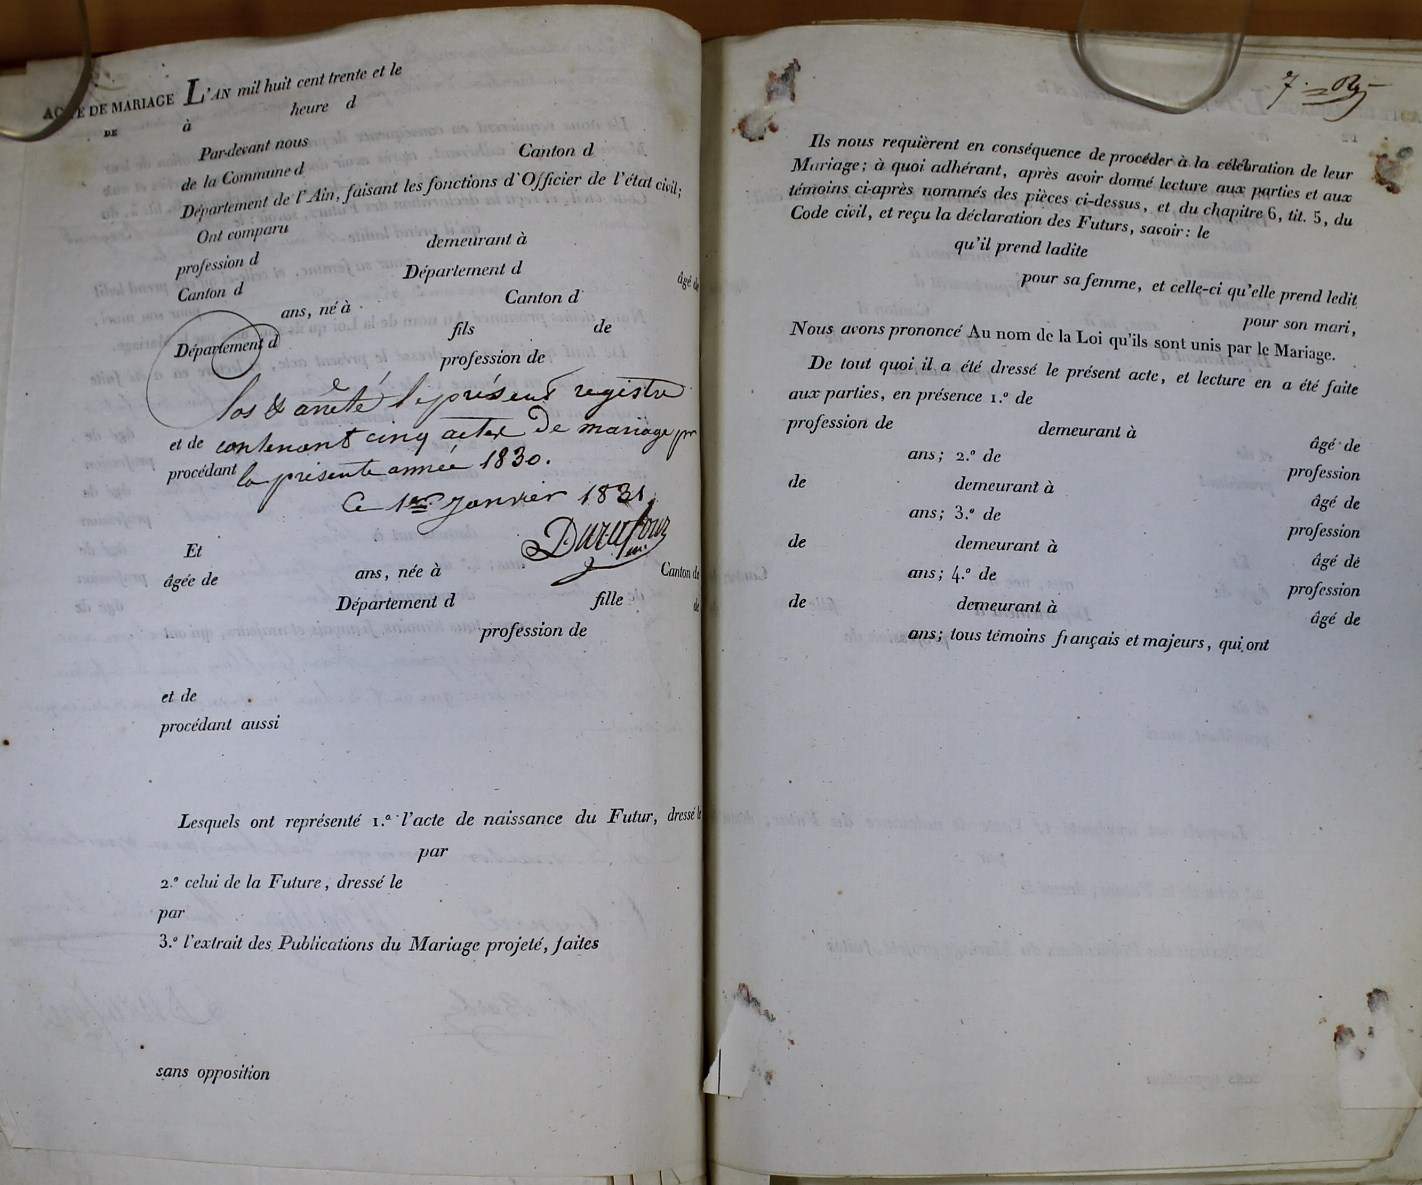 ACTE DE MARIAGE L'AN mil huit cent trente et le
DE à heure d
Par-devant nous
de la Commune d Canton d
Département de l'Ain, faisant les fonctions d'Officier de l'état civil;
Ont comparu
profession d demeurant à
Canton d Département d âgé de
ans, né à Canton d
Département d fils de
profession de
Clos & arrêté le présent registre
et de contenant cinq actes De mariage pr
procédant la présente année 1830.
Ce 1er Janvier 1831
Et
âgée de ans, née à Canton de
Département d fille de
profession de
et de
procédant aussi
Lesquels ont représenté 1.º l'acte de naissance du Futur, dressé le
par
2.º celui de la Future, dressé le
par
3.º l'extrait des Publications du Mariage projeté, faites
sans opposition
Ils nous requièrent en conséquence de procéder à la célébration de leur
Mariage; à quoi adhérant, après avoir donné lecture aux parties et aux
témoins ci-après nommés des pièces ci-dessus, et du chapitre 6, tit. 5, du
Code civil, et reçu la déclaration des Futurs, savoir: le
qu'il prend ladite
pour sa femme, et celle-ci qu'elle prend ledit
pour son mari,
Nous avons prononcé Au nom de la Loi qu'ils sont unis par le Mariage.
De tout quoi il a été dressé le présent acte, et lecture en a été faite
aux parties, en présence 1.º de
profession de demeurant à âgé de
ans; 2.º de profession
de demeurant à âgé de
ans; 3.º de profession
de demeurant à âgé de
ans; 4.º de profession
de demeurant à âgé de
ans; tous témoins français et majeurs, qui ont